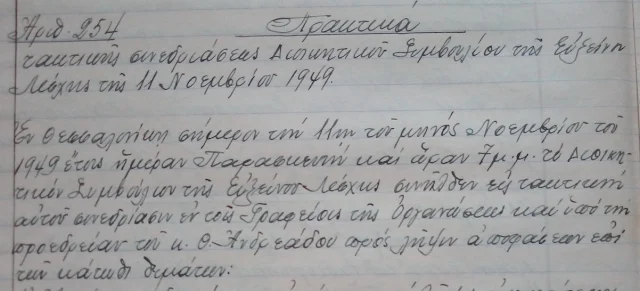 Ἀριθ. 254 Πρακτικὰ
τακτικῆς συνεδριάσεως Διοικητικοῦ Συμβουλίου τῆς Εὐξείνου
Λέσχης τῆς 11 Νοεμβρίου 1949.
Ἐν Θεσσαλονίκῃ σήμερον τὴν 11ην τοῦ μηνὸς Νοεμβρίου τοῦ
1949 ἔτους ἡμέραν Παρασκευὴν καὶ ὥραν 7 μ.μ. τὸ Διοικη-
τικὸν Συμβούλιον τῆς Εὐξείνου Λέσχης συνῆλθεν εἰς τακτικὴν
αὐτοῦ συνεδρίασιν ἐν τοῖς Γραφείοις τῆς Ὀργανώσεως καὶ ὑπὸ τὴν
προεδρείαν τοῦ κ. Θ. Ἀνδρεάδου πρὸς λῆψιν ἀποφάσεων ἐπὶ
τῶν κάτωθι θεμάτων: